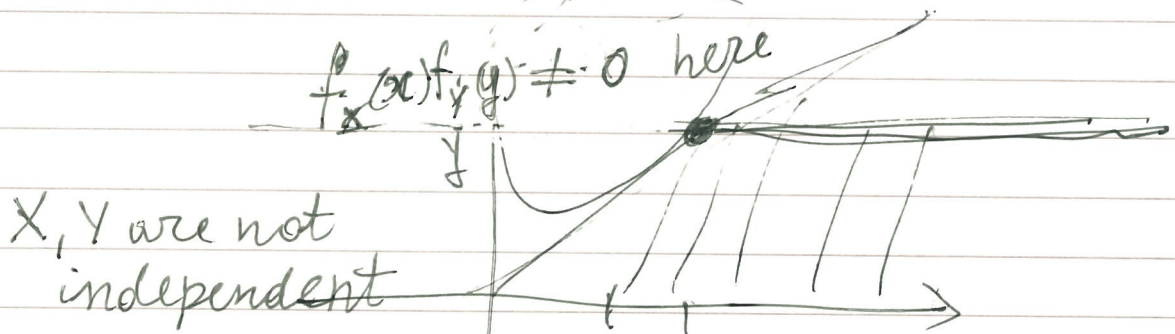 f_X(x)f_Y(y) ≠ 0 here
y
X, Y are not
independent